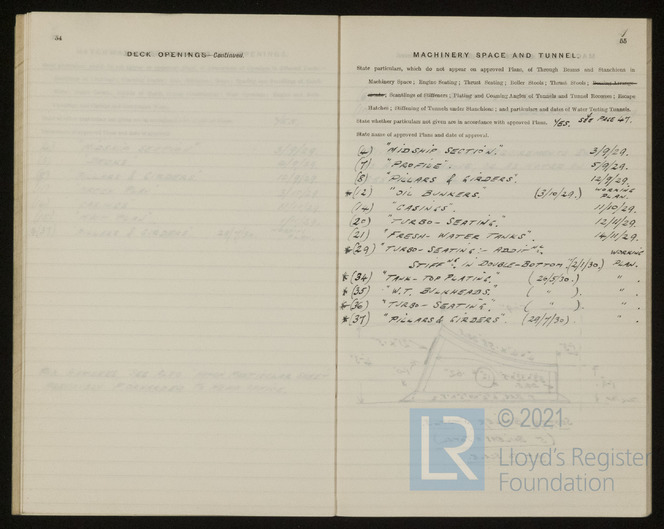 54
DECK OPENINGS—Continued.
1
55
MACHINERY SPACE AND TUNNEL.
State particulars, which do not appear on approved Plans, of Through Beams and Stanchions in
Machinery Space; Engine Seating; Thrust Seating; Boiler Stools; Thrust Stools;
Scantlings of Stiffeners; Plating and Coaming Angles of Tunnels and Tunnel Recesses; Escape
Hatches; Stiffening of Tunnels under Stanchions; and particulars and dates of Water Testing Tunnels.
State whether particulars not given are in accordance with approved Plans. YES. SEE PAGE 47.
State name of approved Plans and date of approval.
(4) "MIDSHIP SECTION". 3/9/29.
(7) "PROFILE". 5/9/29.
(8) "PILLARS & GIRDERS". 12/9/29.
*(12) "OIL BUNKERS." (3/10/29.) WORKING PLAN.
(14) "CASINGS". 11/10/29.
(20) "TURBO-SEATING". 12/11/29.
(21) "FRESH-WATER TANKS". 14/11/29.
*(29) "TURBO-SEATING:- ADDIT^NL.
STIFF^NG. IN DOUBLE-BOTTOM". (2/1/30.) WORKING PLAN.
*(34) "TANK-TOP PLATING". (20/5/30.) " .
*(35) "W.T. BULKHEADS." ( " ). " .
*(36) "TURBO-SEATING". ( " ). " .
*(37) "PILLARS & GIRDERS". (29/7/30). " .
LR
© 2021
Lloyd's Register
Foundation